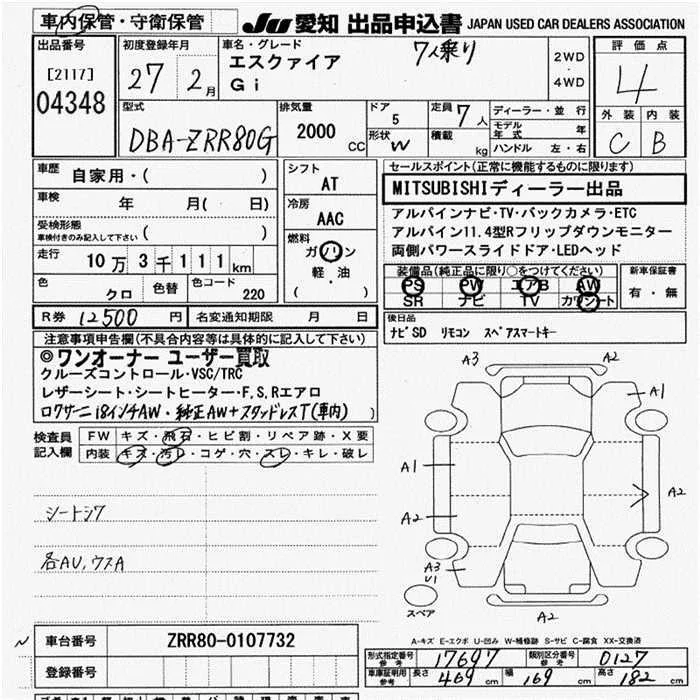 車内保管・守衛保管
JU 愛知 出品申込書 JAPAN USED CAR DEALERS ASSOCIATION
出品番号
[2117]
04348
初度登録年月
27 2月
車名・グレード
エスクァイア
Gi
7人乗り
2WD
・
4WD
評価点
4
外装 内装
C B
型式
DBA-ZRR80G
排気量
2000 CC
ドア
5
形状 W
定員 7人
積載 kg
ディーラー・並行
モデル年式 年
ハンドル 左・右
車歴
自家用・( )
車検
年 月( 日)
受検形態
車検付きのみ記入して下さい ( )
走行
10万3千111km
色
クロ
色替
色コード
220
シフト
AT
冷房
AAC
燃料
ガソリン
軽・油
( )
セールスポイント(正常に機能するものに限ります)
MITSUBISHIディーラー出品
アルパインナビ・TV・バックカメラ・ETC
アルパイン11.4型Rフリップダウンモニター
両側パワースライドドア・LEDヘッド
装備品(純正品に限り○をつけてください)
PS PW エアB AW
SR ナビ TV カワシート
新車保証書
有・無
R券 12500円
名変通知期限 月 日
後日品
ナビSD リモコン スペアスマートキー
注意事項申告欄(不具合内容等は具体的に記入して下さい)
◎ワンオーナー ユーザー買取
クルーズコントロール・VSC/TRC
レザーシート・シートヒーター・F,S,Rエアロ
ロクサーニ18インチAW・純正AW+スタッドレスT(車内)
検査員
記入欄
FW キズ・飛石・ヒビ割・リペア跡・X要
内装 キズ・汚レ・コゲ・穴・スレ・キレ・破レ
シートシワ
各AU,ウスA
A3
A2
A1
A1
A2
A3
U1
スペア
A2
A-キズ E-エクボ U-凹み W-補修跡 S-サビ C-腐食 XX-交換済
車台番号
ZRR80-0107732
登録番号
形式指定番号 参考 17697
類別区分番号 参考 0127
車庫証明用 参考 長さ 469cm 幅 169cm 高さ 182cm